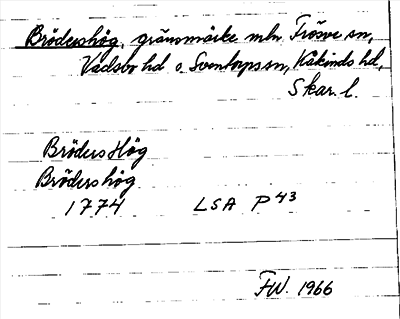 Brödershög, gränsmärke mln Frösve sn,
Vadsbo hd o Sventorps sn, Kåkinds hd,
Skar. l.
Bröders Hög
Brödershög
1774 LSA P 43
FW. 1966